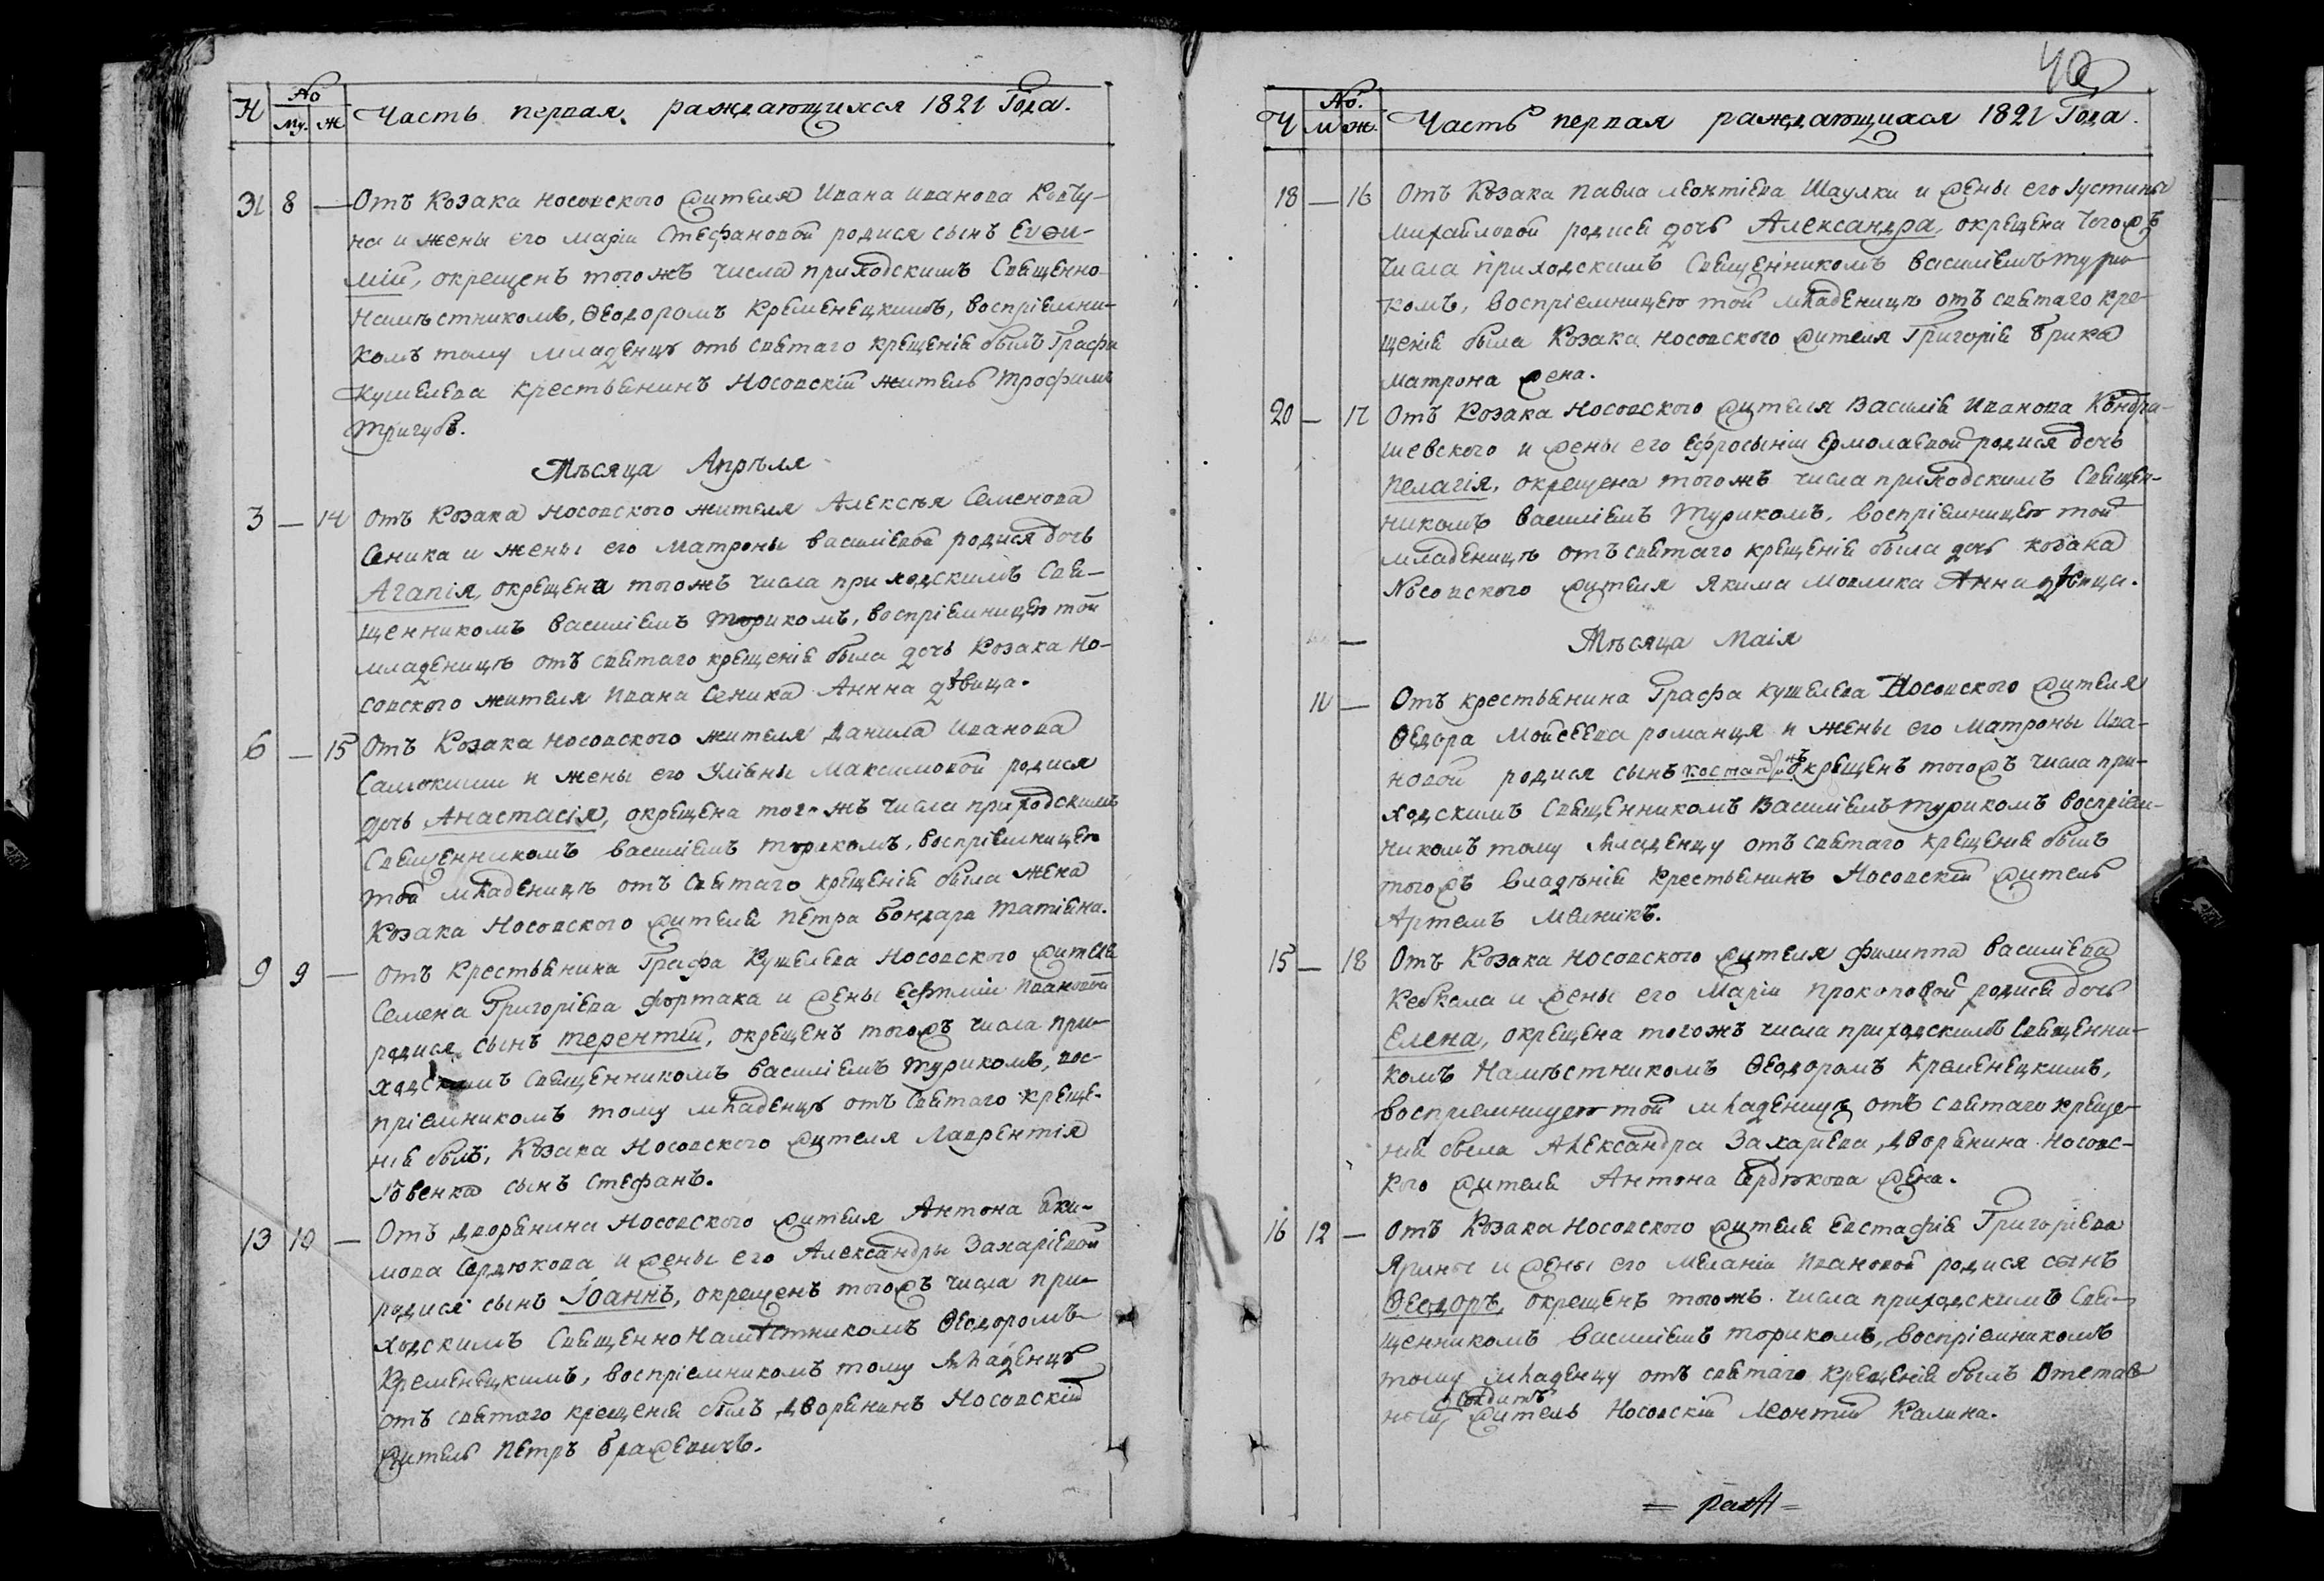 Ч № Му. Ж Часть первая раждающихся 1821 Года.
31 8 — Отъ Козака Носовского жителя Ивана Иванова Ковту-
на и жены его Маріи Стефановой родися сынъ Евѳи-
мій, окрещенъ тогожъ числа приходскимъ Священно-
Намѣстникомъ, Ѳеодоромъ Кременецкимъ, воспріемни-
комъ тому младенцу отъ святаго крещенія былъ Графа
Кушелева крестьянинъ Носовскій житель Трофимъ
Тригубъ.
Мѣсяца Апрѣля
3 — 14 Отъ Козака Носовского жителя Алексѣя Семенова
Сеника и жены его Матроны Василіевой родися дочь
Агапія, окрещена тогожъ числа приходскимъ Свя-
щенникомъ Василіемъ Туриком, воспріемницею той
младеницѣ отъ святаго крещенія была дочь Козака Но-
совского жителя Ивана Сеника Анна дѣвица.
6 — 15 Отъ Козака Носовского жителя Данила Иванова
и жены его Уліяны Максимовой родися
дочь Анастасія, окрещена тогожъ числа приходскимъ
Священникомъ Василіемъ Туриком, воспріемницею
той младеницѣ отъ святаго крещенія была жена
Козака Носовского жителя Петра Бондаря Татіяна.
9 9 — Отъ Крестьянина Графа Кушелева Носовского жителя
Семена Григоріева Фортака и жены Ефиміи Ивановой
родися сынъ Терентій, окрещенъ тогожъ числа при-
ходскимъ Священникомъ Василіемъ Туриком, вос-
пріемникомъ тому младенцу отъ святаго креще-
нія былъ, Козака Носовского жителя Лаврентія
сынъ Стефанъ.
13 10 — Отъ Дворянина Носовского жителя Антона Яки-
мова Сердюкова и жены его Александры Захаріевой
родися сынъ Іоаннъ, окрещенъ тогожъ числа при-
ходскимъ СвященноНамѣстникомъ Ѳеодоромъ
Кременецкимъ, воспріемникомъ тому младенцу
отъ святаго крещенія былъ Дворянинъ Носовскій
житель Петръ Бражевичъ.
40
Ч №. М Ж. Часть первая раждающихся 1821 Года.
18 — 16 Отъ Козака Павла Леонтіева Шаулки и жены его Іустины
Михайловой родися дочь Александра, окрещена тогожъ
числа приходскимъ Священникомъ Василіемъ Тури-
комъ, воспріемницею той младеницѣ отъ святаго кре-
щенія была Козака Носовского жителя Григорія Брика
Матрона жена.
20 — 17 Отъ Козака Носовского жителя Василія Иванова Кондра-
шевского и жены его Ефросыніи Ермолаевой родися дочь
Пелагія, окрещена тогожъ числа приходскимъ Священ-
никомъ Василіемъ Туриком, воспріемницею той
младеницѣ отъ святаго крещенія была дочь козака
Носовского жителя Якима Мовлика Анна дѣвица.
— Мѣсяца Маія
11 — Отъ крестьянина Графа Кушелева Носовского жителя
Ѳедора Мойсеева Романця и жены его Матроны Ива-
новой родися сынъ Костантинъ окрещенъ тогожъ числа при-
ходскимъ Священникомъ Василіемъ Туриком воспріем-
никомъ тому младенцу отъ святаго крещенія былъ
тогожъ владѣнія крестьянинъ Носовскій житель
Артемъ Меленикъ.
15 — 18 Отъ Козака Носовского жителя Филиппа Василіева
Кебкала и жены его Маріи Прокоповой родися дочь
Елена, окрещена тогожъ числа приходскимъ Священни-
комъ Намѣстникомъ Ѳеодоромъ Кременецкимъ,
воспріемницею той младеницѣ отъ святаго креще-
нія была Александра Захаріева, Дворянина Носовс-
кого жителя Антона Сердюкова жена.
16 12 — Отъ Козака Носовского жителя Евстафія Григоріева
Ярины и жены его Меланіи Ивановой родися сынъ
Ѳеодоръ, окрещенъ тогожъ числа приходскимъ Свя-
щенникомъ Василіемъ Туриком, воспріемникомъ
тому младенцу отъ святаго крещенія былъ Отстав-
ный Солдатъ житель Носовскій Леонтій Калина.